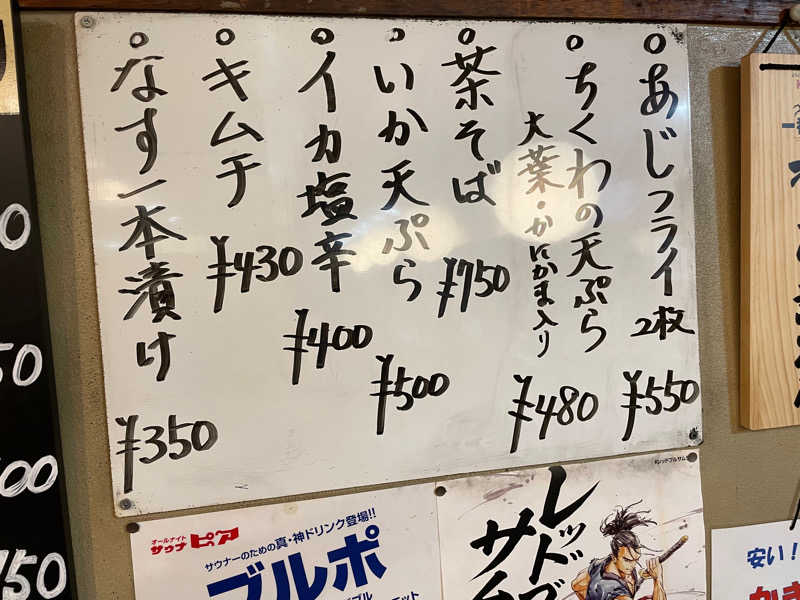 ○あじフライ
2枚
¥550
○ちくわの天ぷら
大葉・かにかま入り
¥480
○茶そば
¥750
○いか天ぷら
¥500
○イカ塩辛
¥400
○キムチ
¥430
○なす一本漬け
¥350
オールナイト
サウナピア
サウナーのための真・神ドリンク登場!!
ブルポ
レッドブ
サム
安い!